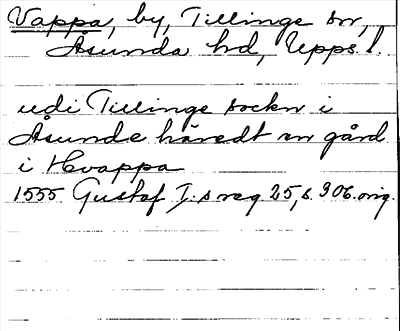 Vappa, by, Tillinge sn,
Åsunda hd, Upps. l.
udi Tillinge sockn i
Åsunde häredt en gård
i Hvappa
1555 Gustaf I:s reg 25, s. 306. orig.